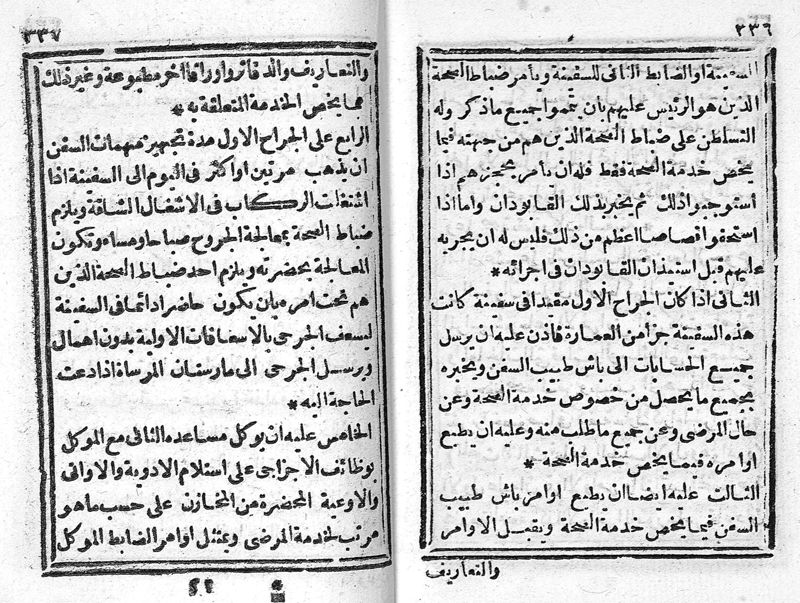 ٣٣٦
السفينة او الضابط الثانى للسفينة ويأمر ضباط الصحة
الذين هو الرئيس عليهم بأن يتمموا جميع ما ذكر وله
التسلطن على ضباط الصحة الذين هم من جهته فيما
يخص خدمة الصحة فقط فله ان يأمر بحجزهم اذا
استوجبوا ذلك ثم يخبر بذلك القابودان واما اذا
استحقوا قصاصا اعظم من ذلك فليس له ان يجريه
عليهم قبل استيذان القابودان فى اجرائه *
الثانى اذا كان الجراح الاول مقيدا فى سفينة كانت
هذه السفينة جزأ من العمارة فاذن عليه ان يرسل
جميع الحسابات الى باش طبيب السفن ويخبره
بجميع ما يحصل من خصوص خدمة الصحة وعن
حال المرضى وعن جميع ما طلب منه وعليه ان يطيع
اوامره فيما يخص خدمة الصحة *
الثالث عليه ايضا ان يطيع اوامر باش طبيب
السفن فيما يخص خدمة الصحة ويقبل الاوامر
والتعاريف
٣٣٧
والتعاريف والدفاتر واوراقا اخر مطبوعة وغير ذلك
مما يخص الخدمة المتعلقة به *
الرابع على الجراح الاول مدة تجهيز مهمات السفن
ان يذهب مرتين او اكثر فى اليوم الى السفينة اذا
اشتغلت الركاب فى الاشغال الشاقة ويلزم
ضباط الصحة بمعالجة الجروح صباحا ومساء وتكون
المعالجة بحضرته ويلزم احد ضباط الصحة الذين
هم تحت امره بان يكون حاضرا دائما فى السفينة
ليسعف الجرحى بالاسعافات الاولية بدون اهمال
ويرسل الجرحى الى مارستان المرساة اذا دعت
الحاجة اليه *
الخامس عليه ان يوكل مساعده الثانى مع الموكل
بوظائف الاجزاجى على استلام الادوية والاوانى
والاوعية المحضرة من المخازن على حسب ما هو
مرتب لخدمة المرضى ويمتثل اوامر الضابط الموكل